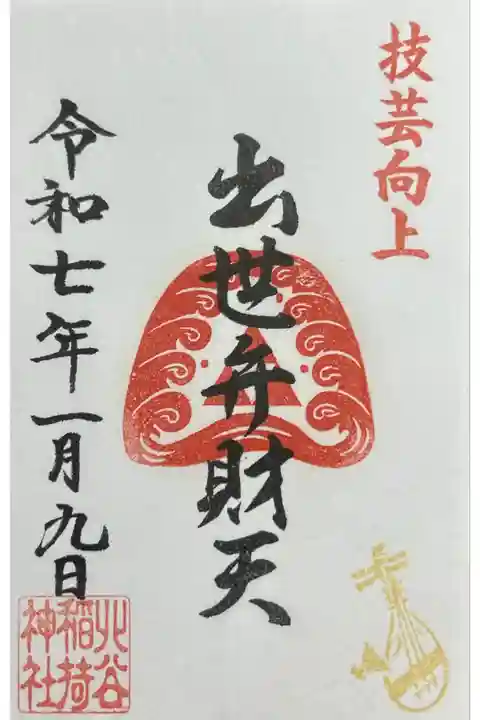 技芸向上
出世弁財天
令和七年一月九日
北谷
稲荷
神社